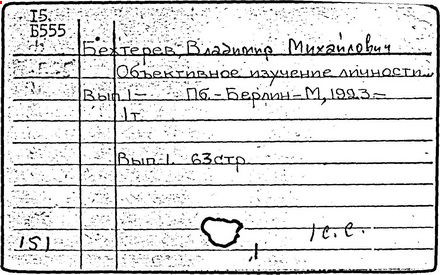 15.
Б555
Бехтерев, Владимир Михайлович
Объективное изучение личности...
Вып. 1 — Пб.-Берлин-М, 1923 —
1т.
Вып. 1. 63 стр.
151
1 с.с.